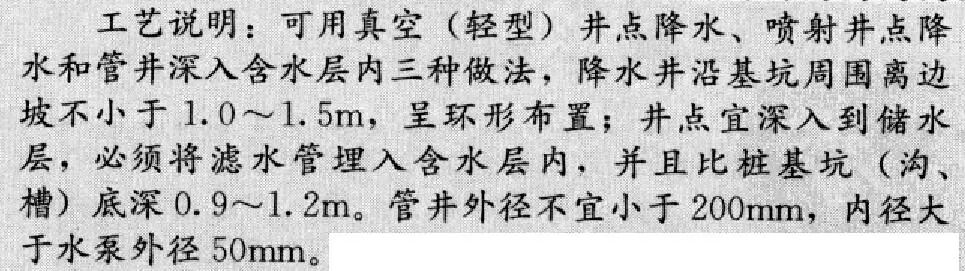 工艺说明：可用真空（轻型）井点降水、喷射井点降
水和管井深入含水层内三种做法，降水井沿基坑周围离边
坡不小于1.0～1.5m，呈环形布置；井点宜深入到储水
层，必须将滤水管埋入含水层内，并且比桩基坑（沟、
槽）底深0.9～1.2m。管井外径不宜小于200mm，内径大
于水泵外径50mm。